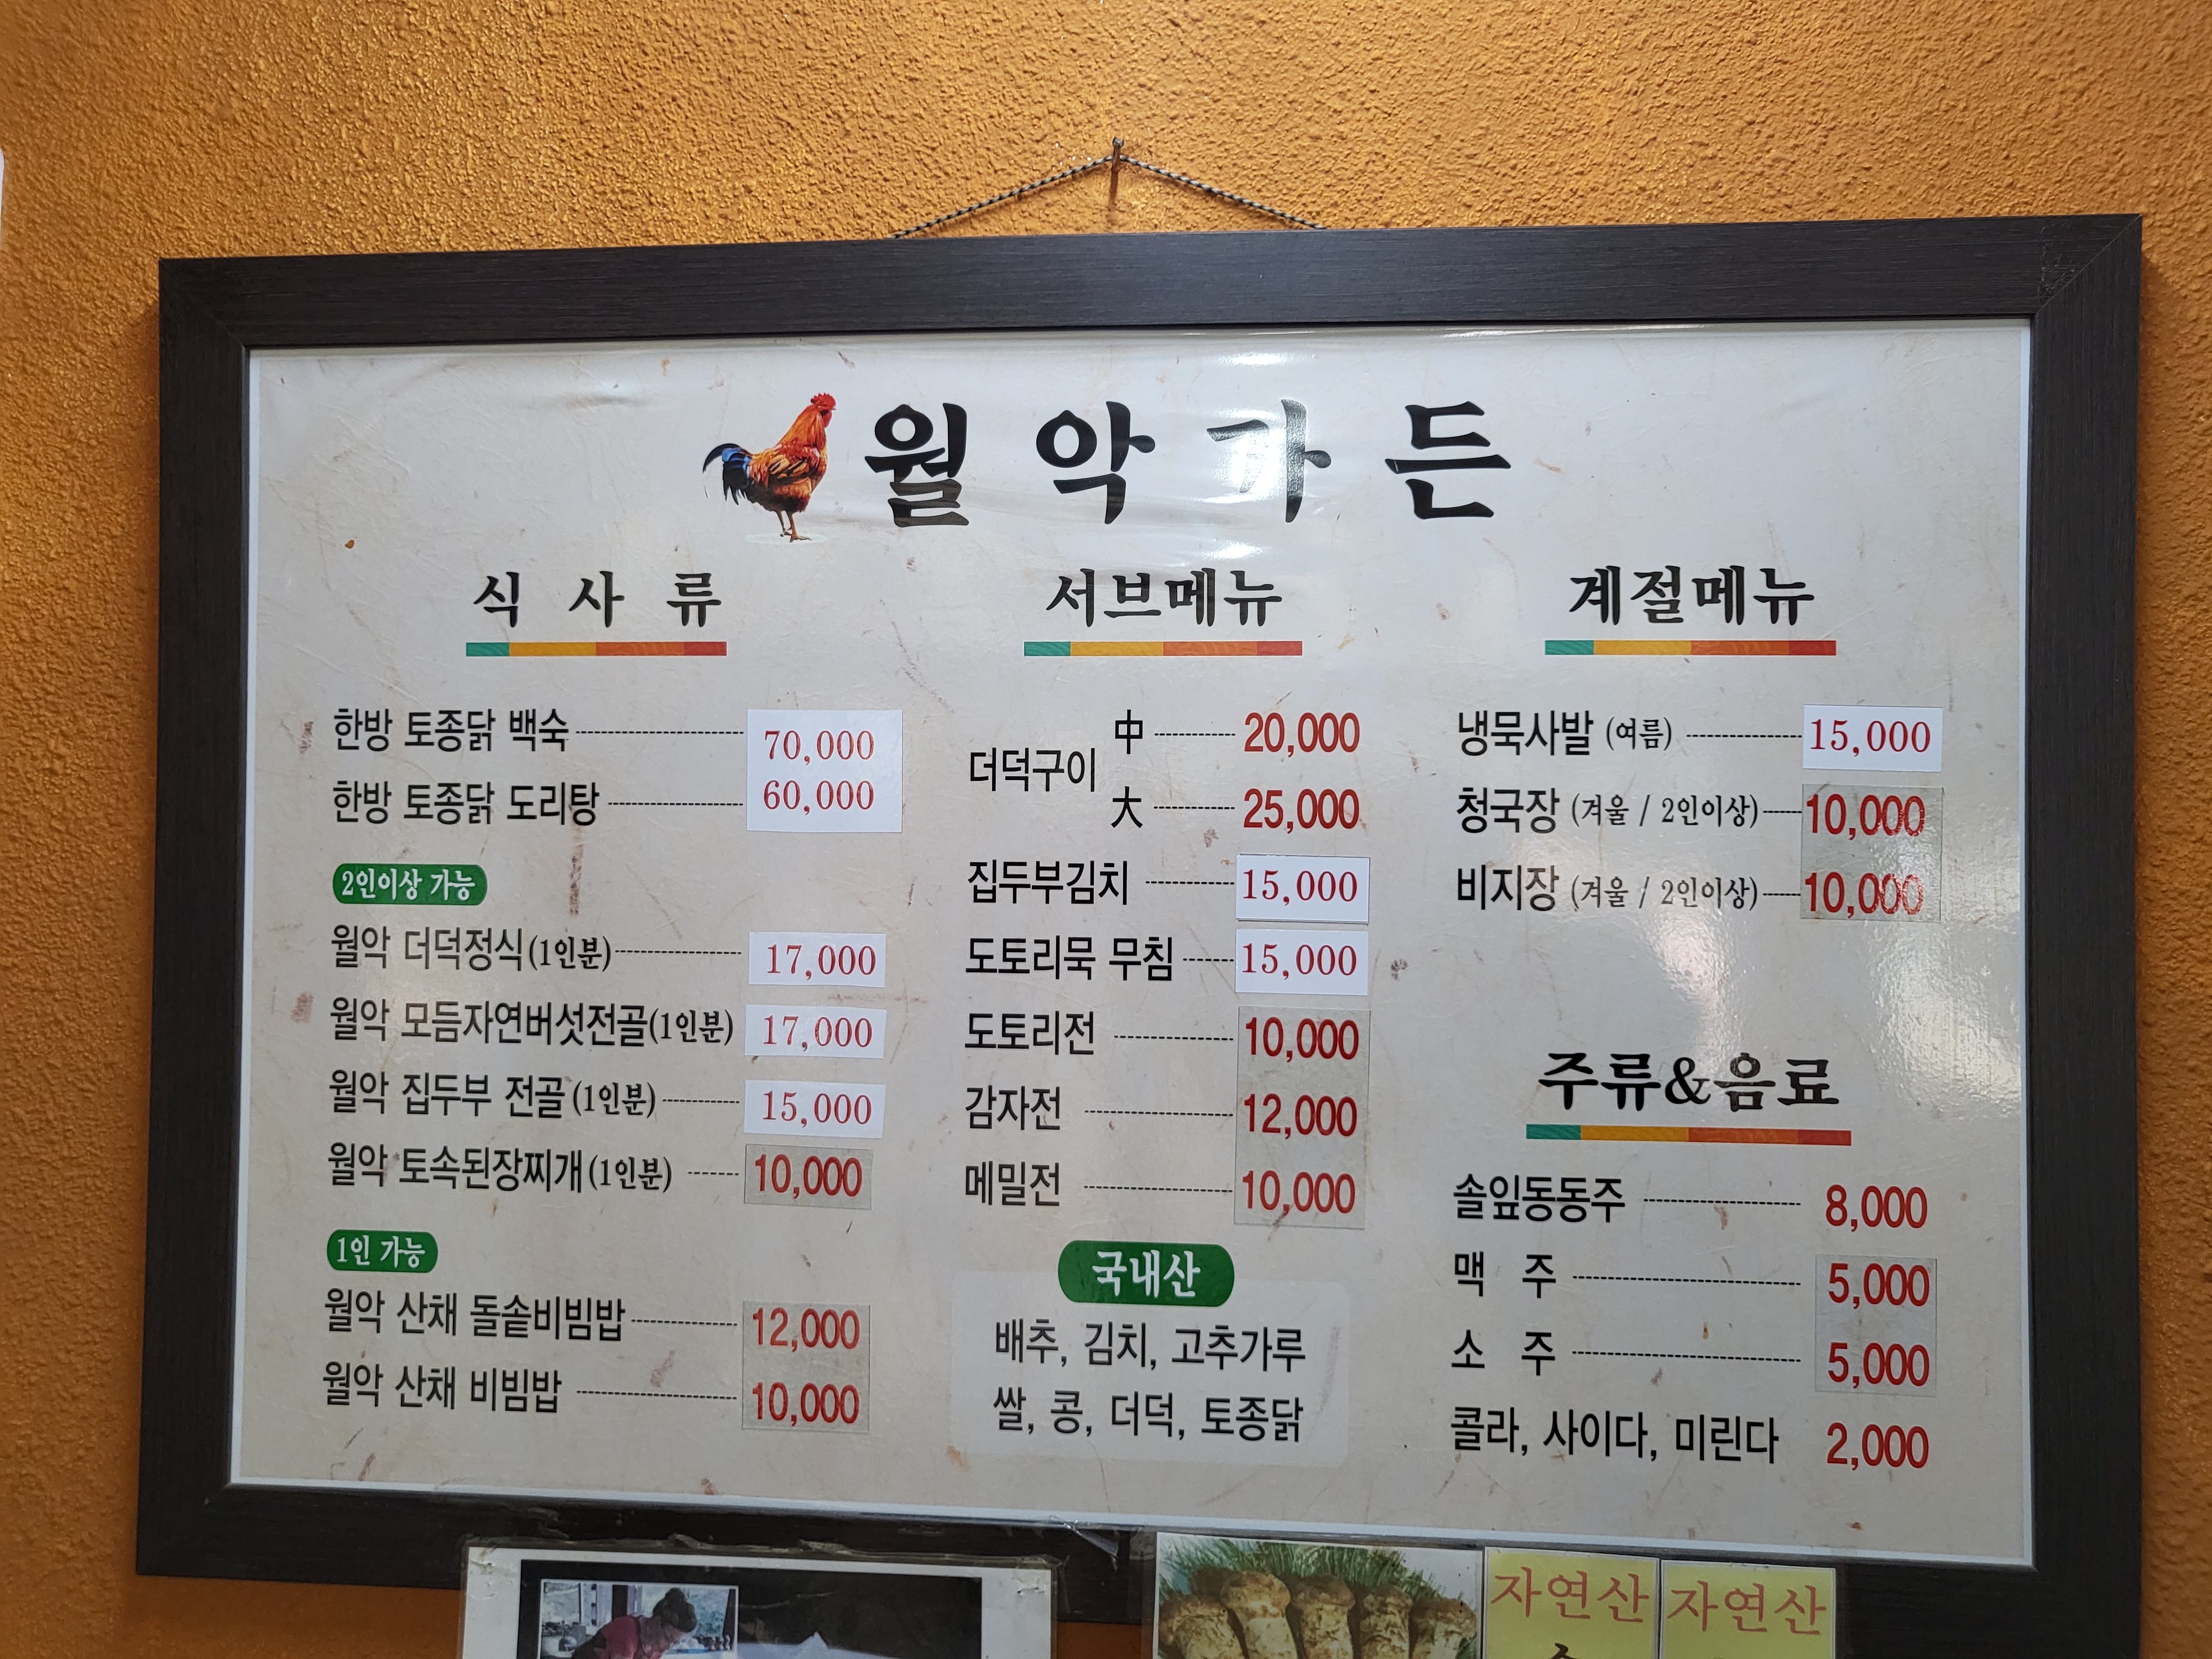 월악가든
식사류
한방 토종닭 백숙 70,000
한방 토종닭 도리탕 60,000
2인이상 가능
월악 더덕정식(1인분) 17,000
월악 모듬자연버섯전골(1인분) 17,000
월악 집두부 전골(1인분) 15,000
월악 토속된장찌개(1인분) 10,000
1인 가능
월악 산채 돌솥비빔밥 12,000
월악 산채 비빔밥 10,000
서브메뉴
더덕구이 中 20,000
大 25,000
집두부김치 15,000
도토리묵 무침 15,000
도토리전 10,000
감자전 12,000
메밀전 10,000
국내산
배추, 김치, 고추가루
쌀, 콩, 더덕, 토종닭
계절메뉴
냉묵사발 (여름) 15,000
청국장 (겨울 / 2인이상) 10,000
비지장 (겨울 / 2인이상) 10,000
주류&음료
솔잎동동주 8,000
맥주 5,000
소주 5,000
콜라, 사이다, 미린다 2,000
자연산
자연산